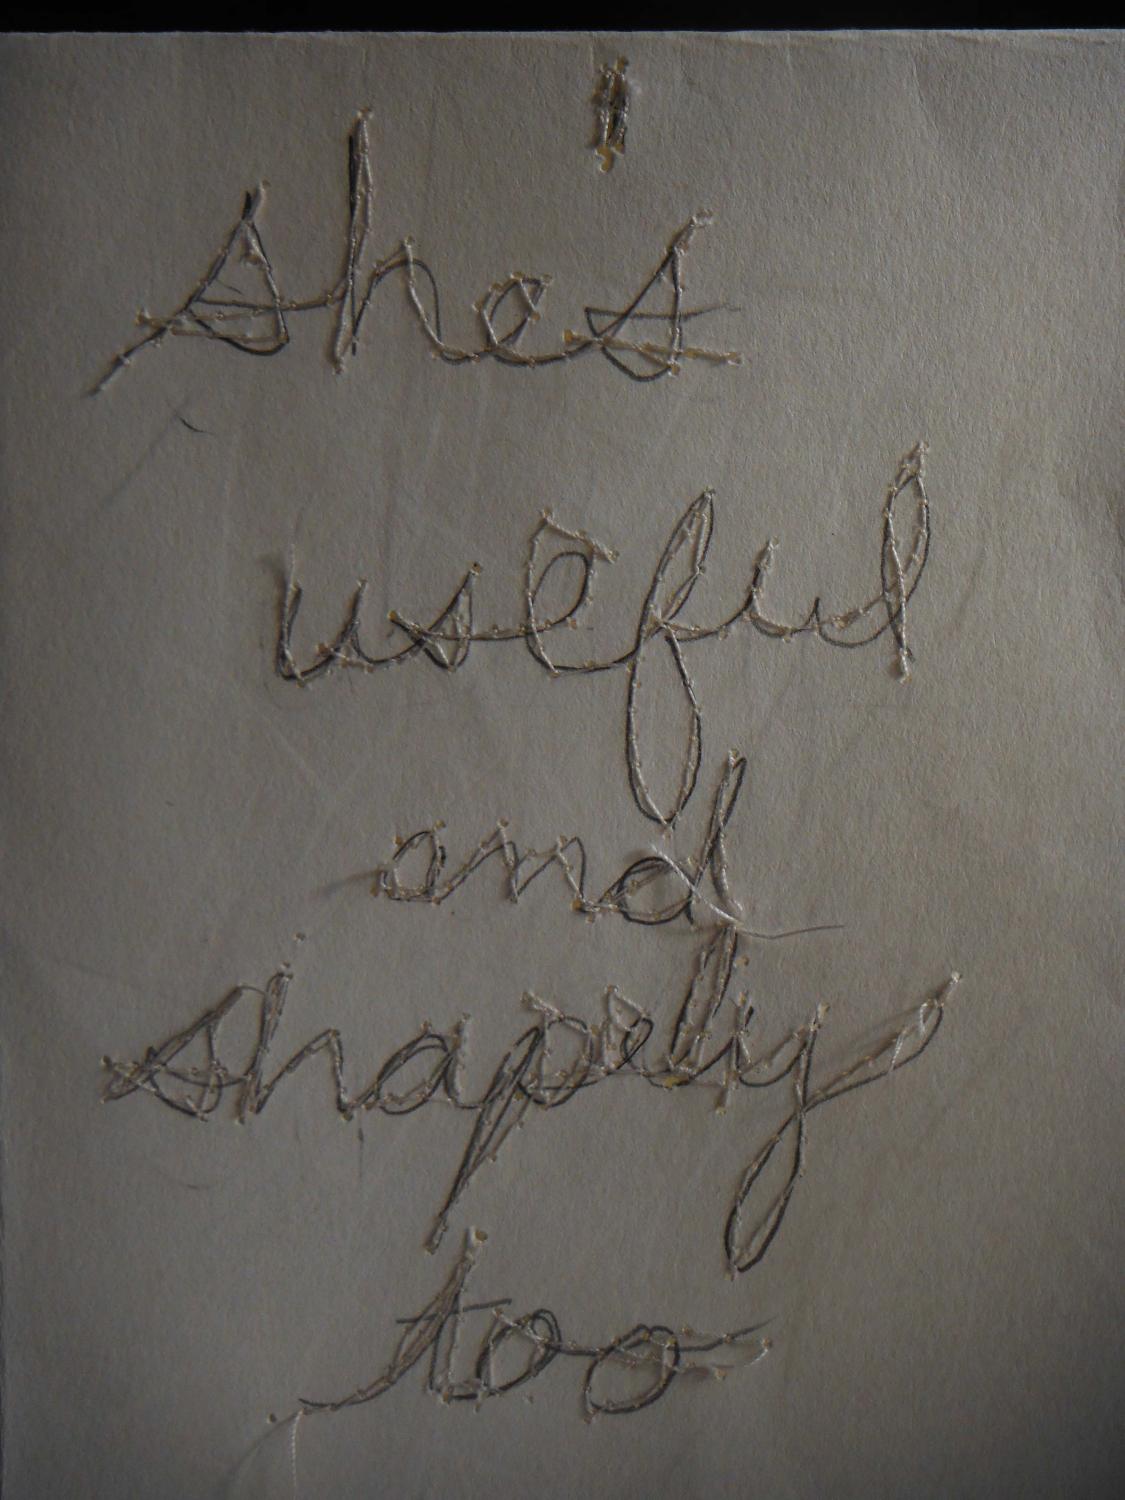 she's
useful
and
shapely
too